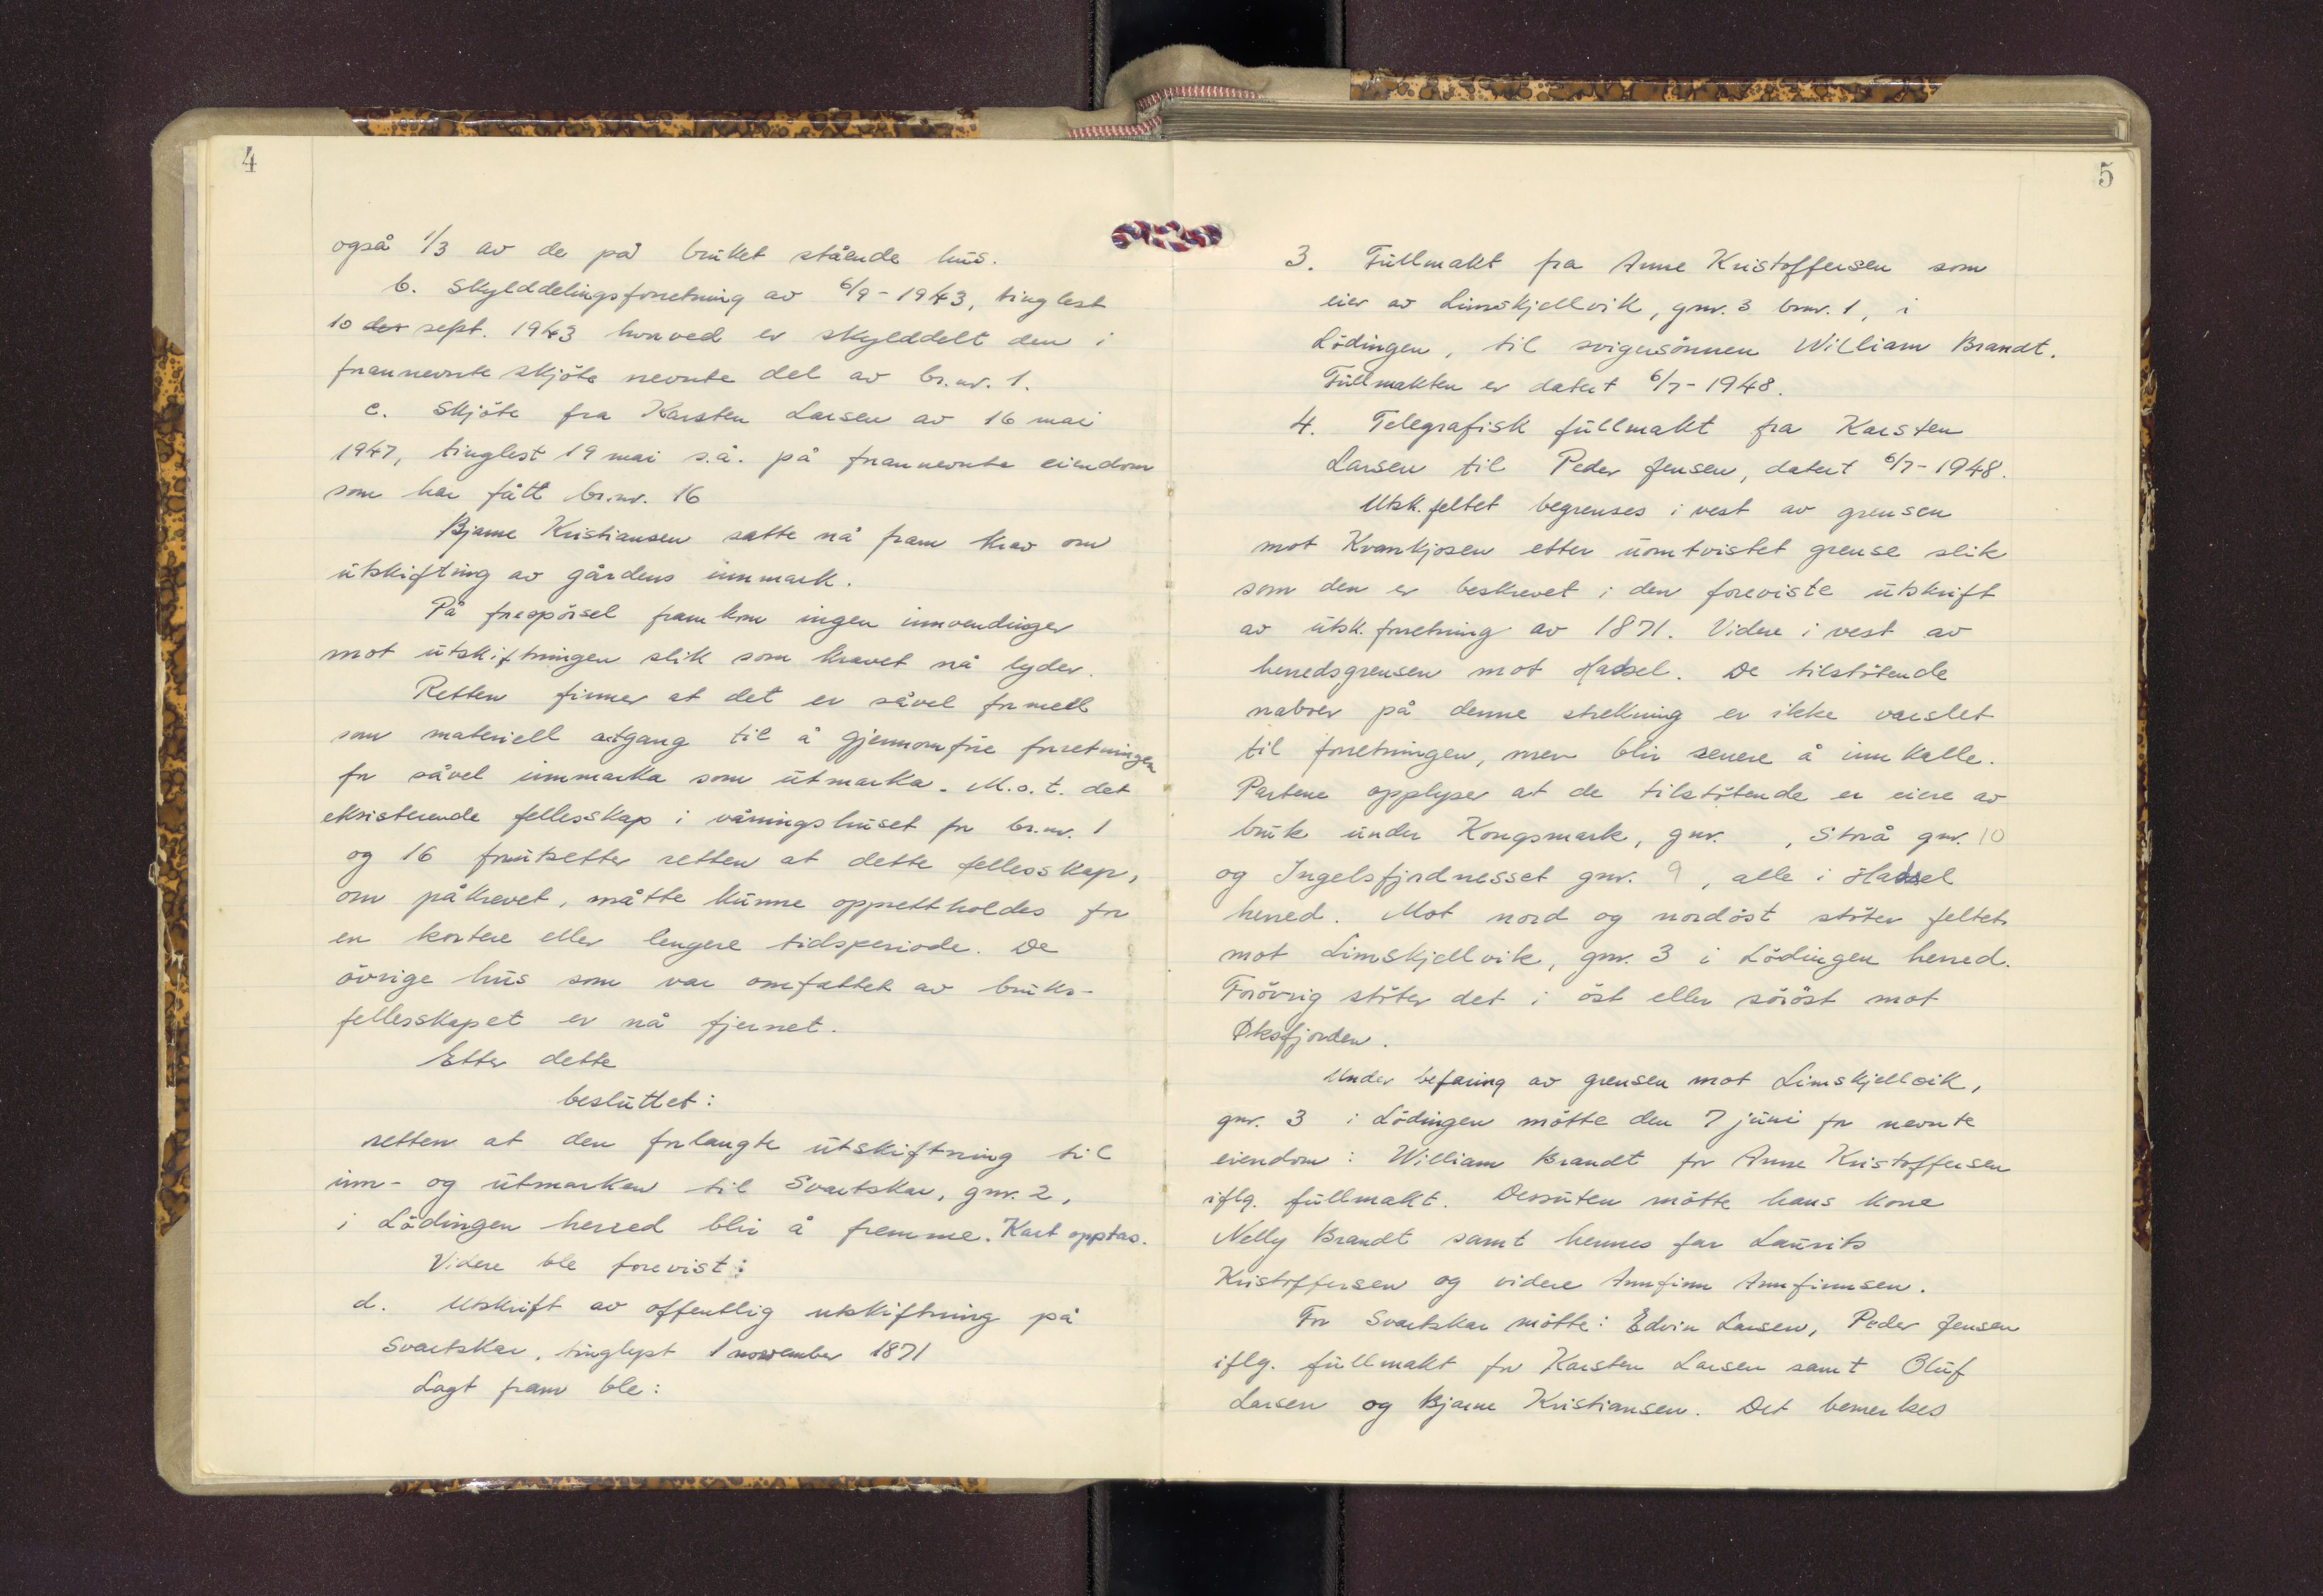 4
også 1/3 av de på bruket stående hus.
b. Skylddelingsforretning av 6/9-1943, tinglest
10 des sept. 1943 hvorved er skylddelt den i
frannevnte skjöte nevnte del av br.nr. 1.
c. Skjöte fra Karsten Larsen av 16 mai
1947, tinglest 19 mai s.å. på frannevnte eiendom
som har fått br.nr. 16
Bjarne Kristiansen satte nå fram krav om
utskifting av gårdens innmark.
På forespörsel framkom ingen innvendinger
mot utskiftningen slik som kravet nå lyder.
Retten finner at det er såvel formell
som materiell adgang til å gjennomföre forretningen
for såvel innmarka som utmarka. M.o.t. det
eksisterende fellesskap i våningshuset for br.nr. 1
og 16 forutsetter retten at dette fellesskap,
om påkrevet, måtte kunne opprettholdes for
en kortere eller lengere tidsperiode. De
övrige hus som var omfattet av bruks-
fellesskapet er nå fjernet.
Etter dette
besluttet:
retten at den forlangte utskiftning til
inn- og utmarken til Svartskar, gnr. 2,
i Lödingen herred blir å fremme. Kart opptas.
Videre ble forevist:
d. Utskrift av offentlig utskiftning på
Svartskar, tinglyst 1 november 1871
Lagt fram ble:
5
3. Fullmakt fra Anne Kristoffersen som
eier av Limskjellvik, gnr. 3 bnr. 1, i
Lödingen, til svigersönnen William Brandt.
Fullmakten er datert 6/7-1948.
4. Telegrafisk fullmakt fra Karsten
Larsen til Peder Jensen, datert 6/7-1948.
Utsk.feltet begrenses i vest av grensen
mot Kvankjosen etter uomtvistet grense slik
som den er beskrevet i den foreviste utskrift
av utsk.forretning av 1871. Videre i vest av
herredsgrensen mot Hadsel. De tilstötende
naboer på denne strekning er ikke varslet
til forretningen, men blir senere å innkalle.
Partene opplyser at de tilstötende er eiere av
bruk under Kongsmark, gnr. , Storå gnr. 10
og Ingelsfjordnesset gnr. 9 , alle i Hadsel
herred. Mot nord og nordöst stöter feltet
mot Limskjellvik, gnr. 3 i Lödingen herred.
Forövrig stöter det i öst eller söröst mot
Øksfjorden.
Under befaring av grensen mot Limskjellvik,
gnr. 3 i Lödingen mötte den 7 juni for nevnte
eiendom: William Brandt for Anne Kristoffersen
iflg. fullmakt. Dessuten mötte hans kone
Nelly Brandt samt hennes far Laurits
Kristoffersen og videre Annfinn Annfinnsen.
For Svartskar mötte: Edvin Larsen, Peder Jensen
iflg. fullmakt for Karsten Larsen samt Oluf
Larsen og Bjarne Kristiansen. Det bemerkes